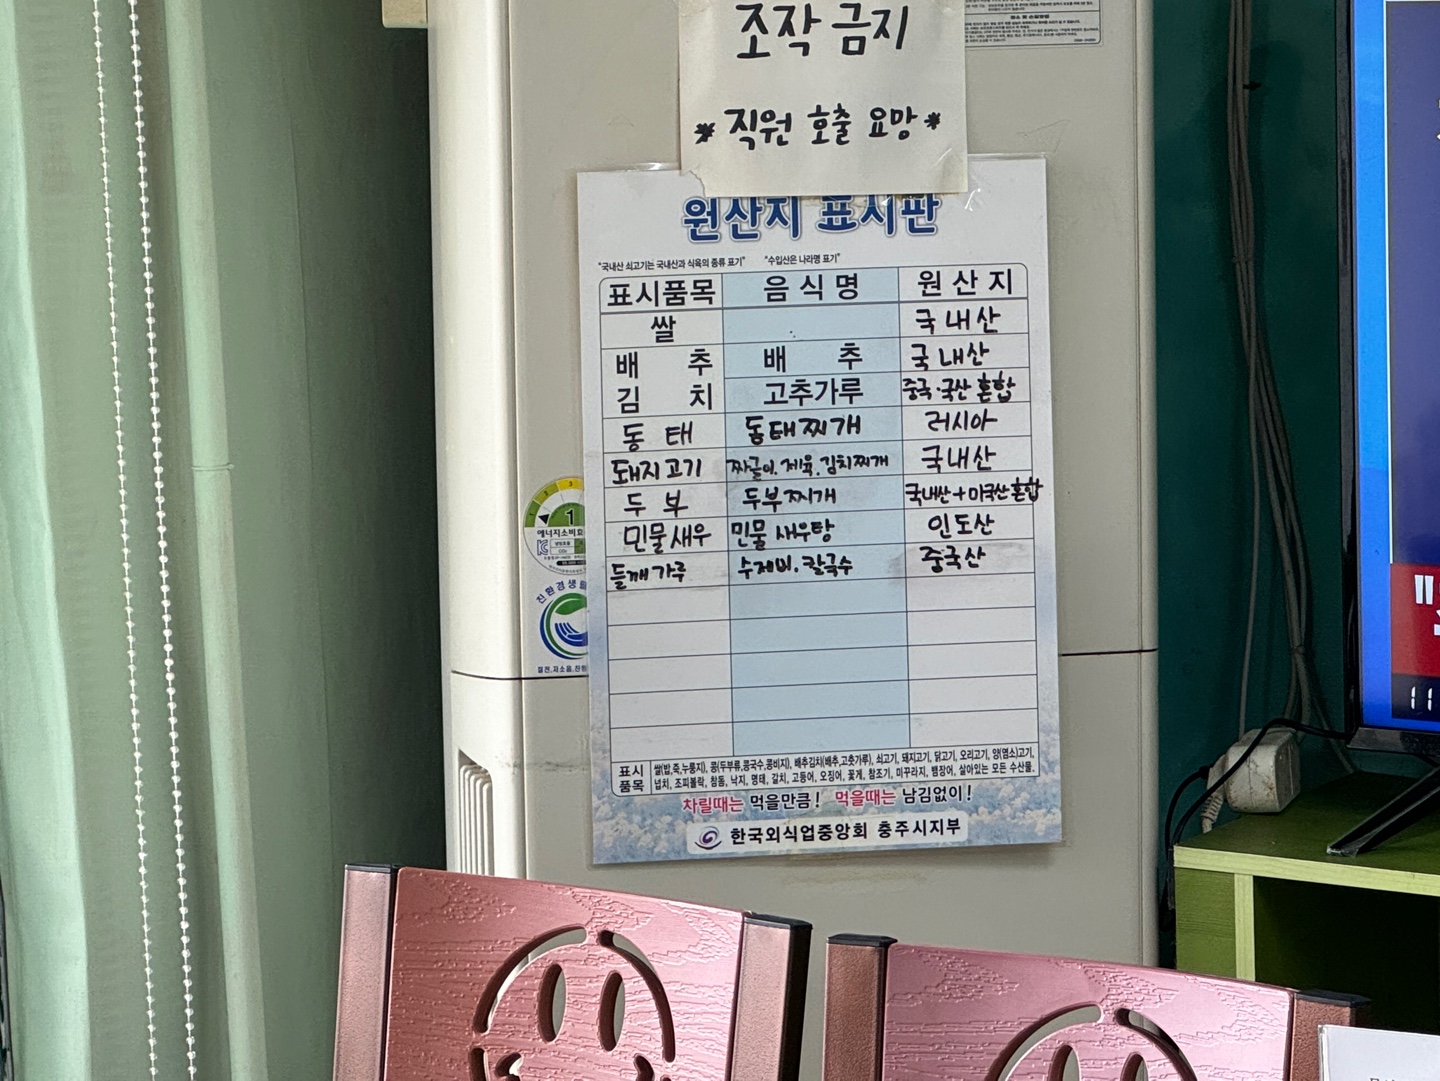 조작 금지
* 직원 호출 요망 *
원산지 표시판
"국내산 쇠고기는 국내산과 식육의 종류 표기" "수입산은 나라명 표기"
표시품목 음식명 원산지
쌀 국내산
배추 배추 국내산
김치 고추가루 중국·국산 혼합
동태 동태찌개 러시아
돼지고기 짜글이.제육.김치찌개 국내산
두부 두부찌개 국내산+미국산혼합
민물새우 민물새우탕 인도산
들깨가루 수제비.칼국수 중국산
표시 품목
쌀(밥,죽,누룽지), 콩(두부류,콩국수,콩비지), 배추김치(배추,고춧가루), 쇠고기, 돼지고기, 닭고기, 오리고기, 양(염소)고기,
넙치, 조피볼락, 참돔, 낙지, 명태, 갈치, 고등어, 오징어, 꽃게, 참조기, 미꾸라지, 뱀장어, 살아있는 모든 수산물.
차릴때는 먹을만큼! 먹을때는 남김없이!
한국외식업중앙회 충주시지부
2 3
1
에너지소비효
친환경생활
절전,저소음,친환
11